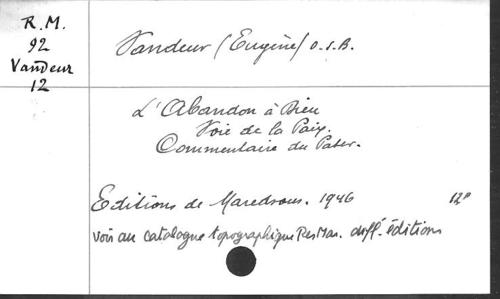 R.M.
92
Vandeur
12
Vandeur (Eugène) O.S.B.
L'Abandon à Dieu
Voie de la Paix.
Commentaire du Pater.
Editions de Maredsous. 1946 12°
voir au catalogue topographique ResMar. diff. éditions